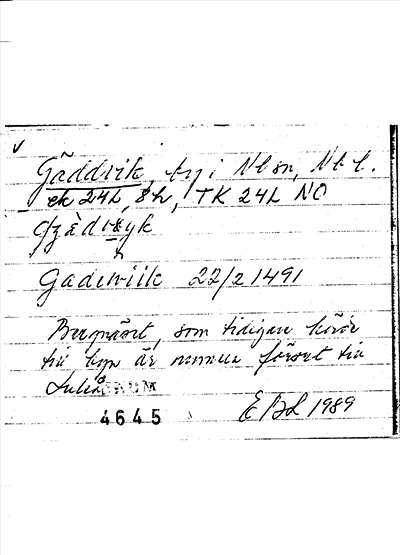 Gäddvik, by i Nl sn, Nb l.
ek 24L, 8h, TK 24L NO
Gadewiik 22/2 1491
Bergnäset, som tidigare hörde
till byn är numera förort till
Luleå
4645
EBL 1989